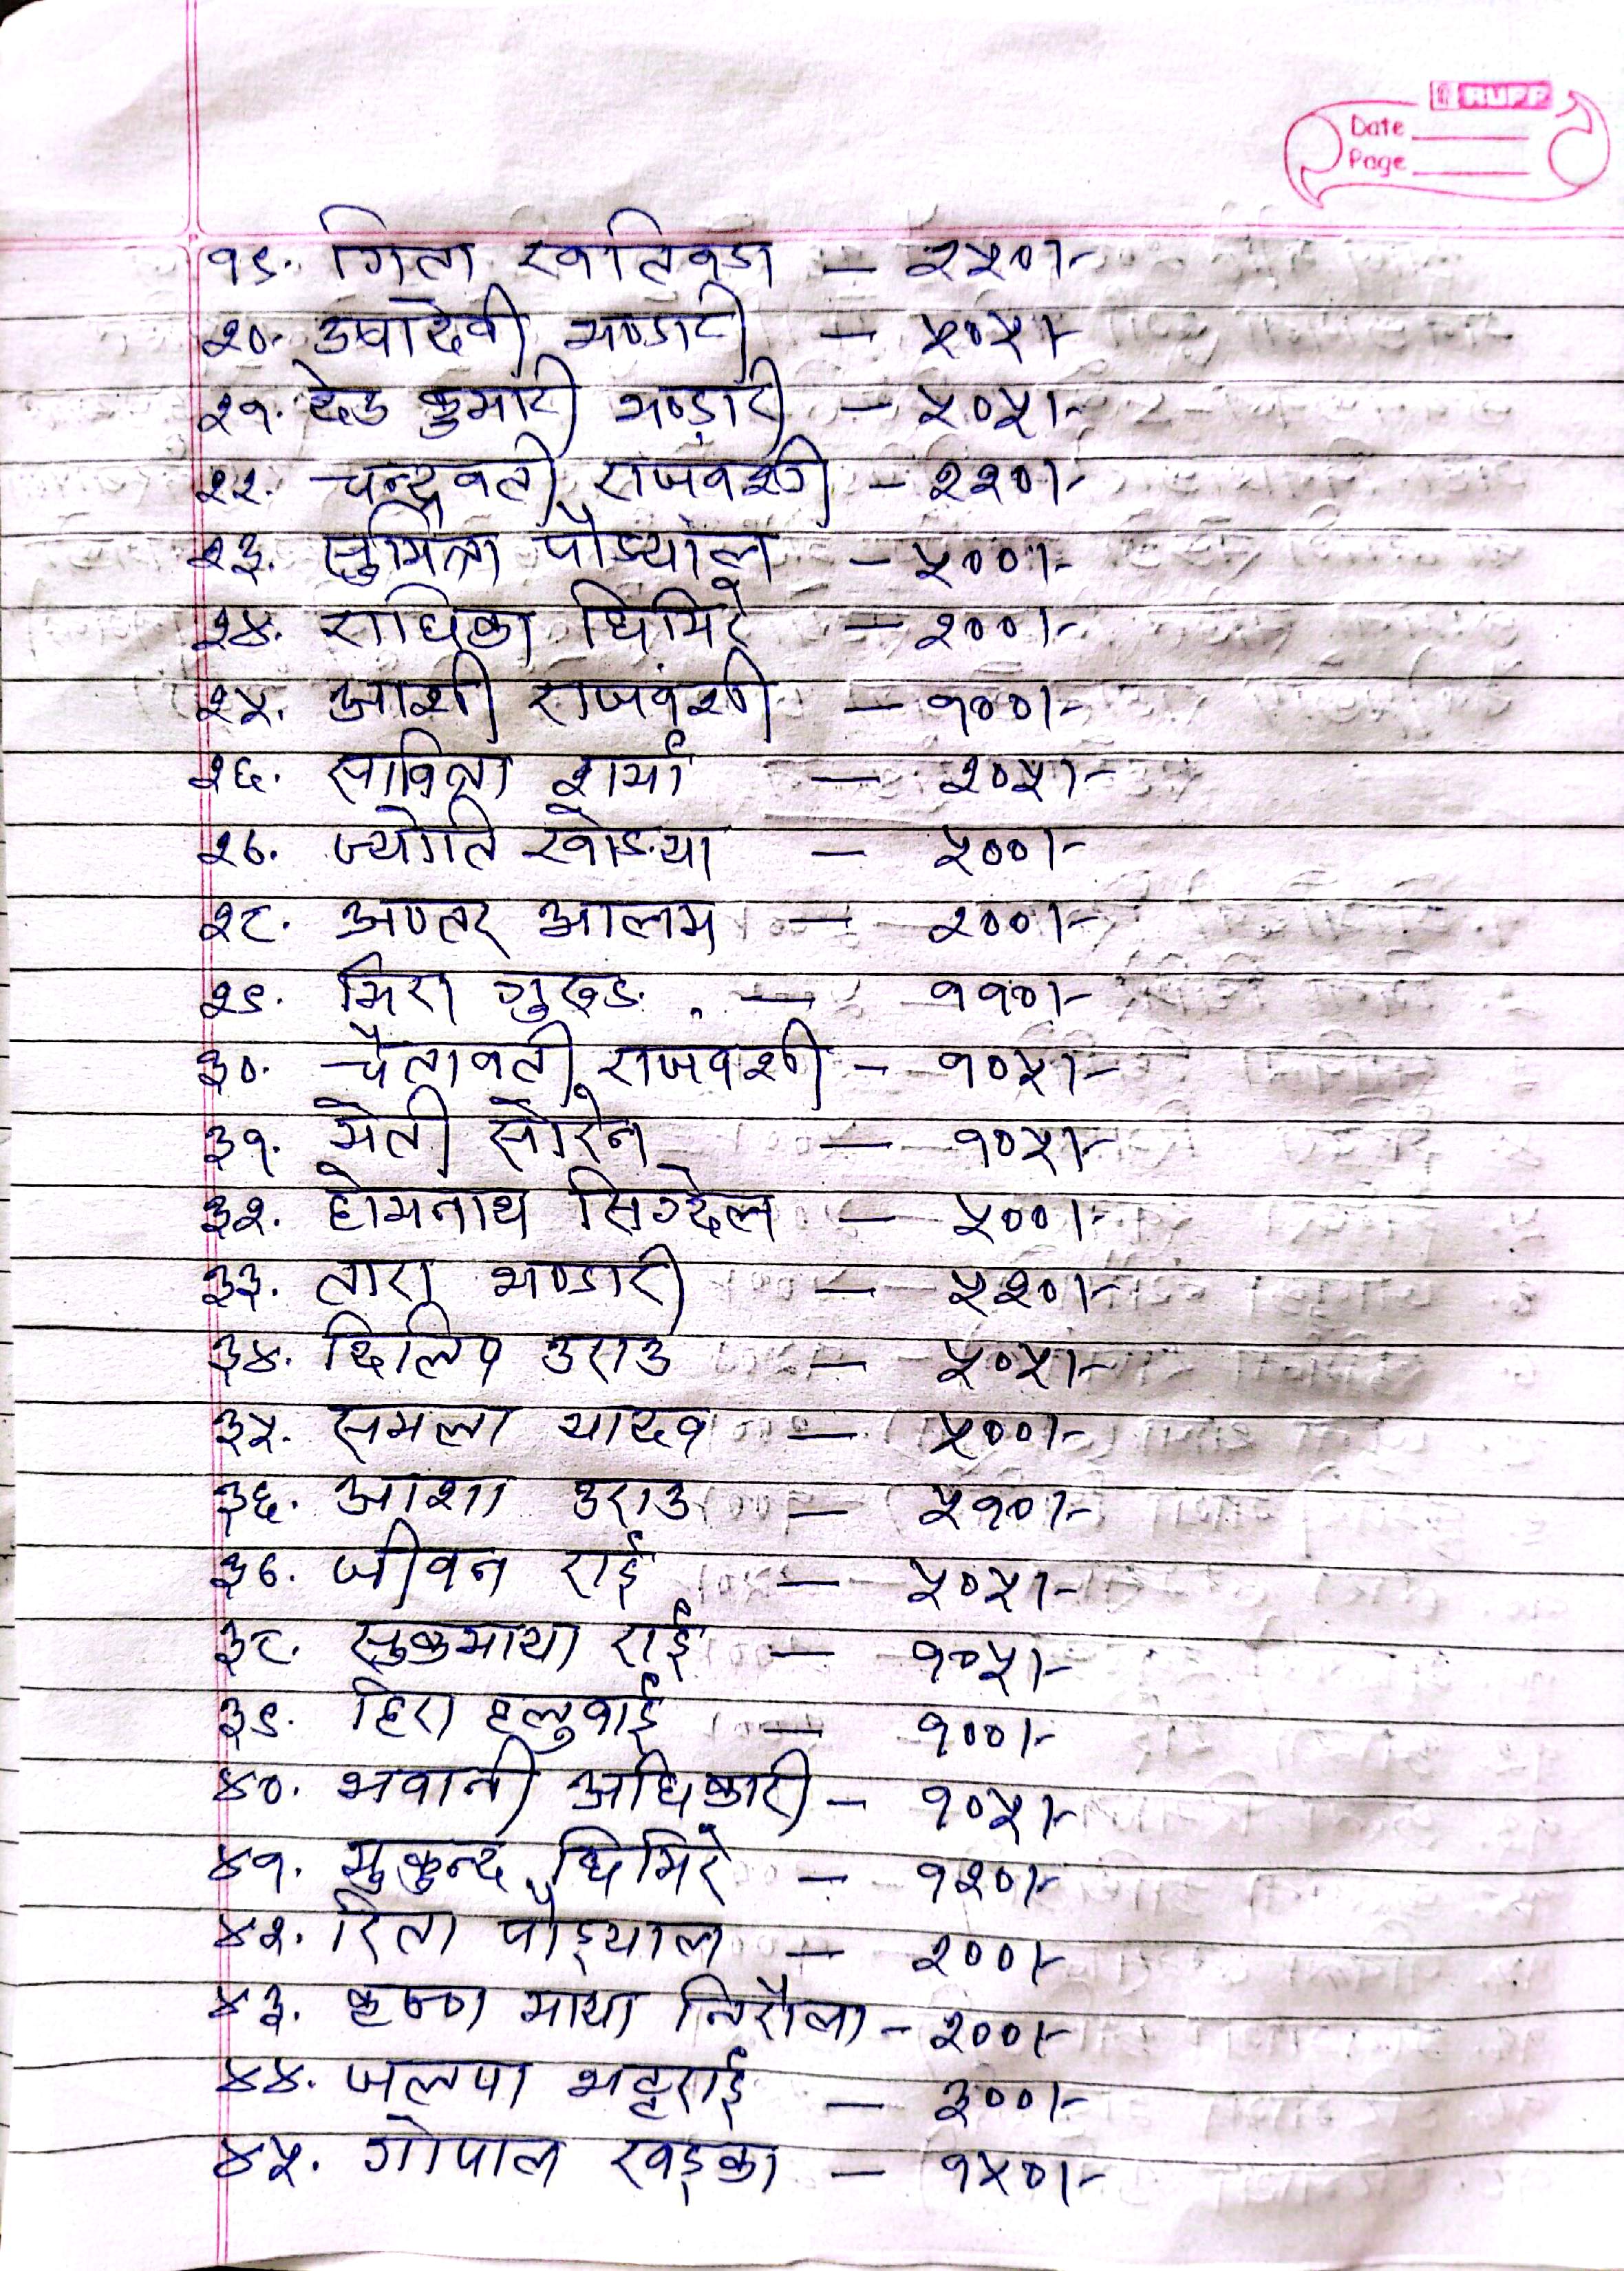 RUFF
Date
Page
१९. गिता खतिवडा — २५०।-
२०. उषादेवी भण्डारी — ५०५।-
२१. देउ कुमारी भण्डारी — ५०५।-
२२. चन्द्रवती राजवंशी — २२०।-
२३. सुमित्रा पौड्याल — ५००।-
२४. राधिका घिमिरे — २००।-
२५. आशी राजवंशी — १००।-
२६. सावित्रा शर्मा — २०५।-
२७. ज्योति — ५००।-
२८. आलम — २००।-
२९. मिरा गुरुङ — ११०।-
३०. चैतावती राजवंशी — १०५।-
३१. मेती सोरेन — १०५।-
३२. होमनाथ सिग्देल — ५००।-
३३. तारा भण्डारी — ५२०।-
३४. दिलिप उराउ — ५०५।-
३५. समला यादव — ५००।-
३६. आशा उराउ — ५१०।-
३७. जीवन राई — ५०५।-
३८. सुकुमाया राई — १०५।-
३९. हिरा हलुवाई — १००।-
४०. भवानी अधिकारी — १०५।-
४१. मुकुन्द घिमिरे — १२०।-
४२. रिता पौड्याल — २००।-
४३. कृष्ण माया निरौला — २००।-
४४. जलपा भट्टराई — ३००।-
४५. गोपाल खड्का — १५०।-